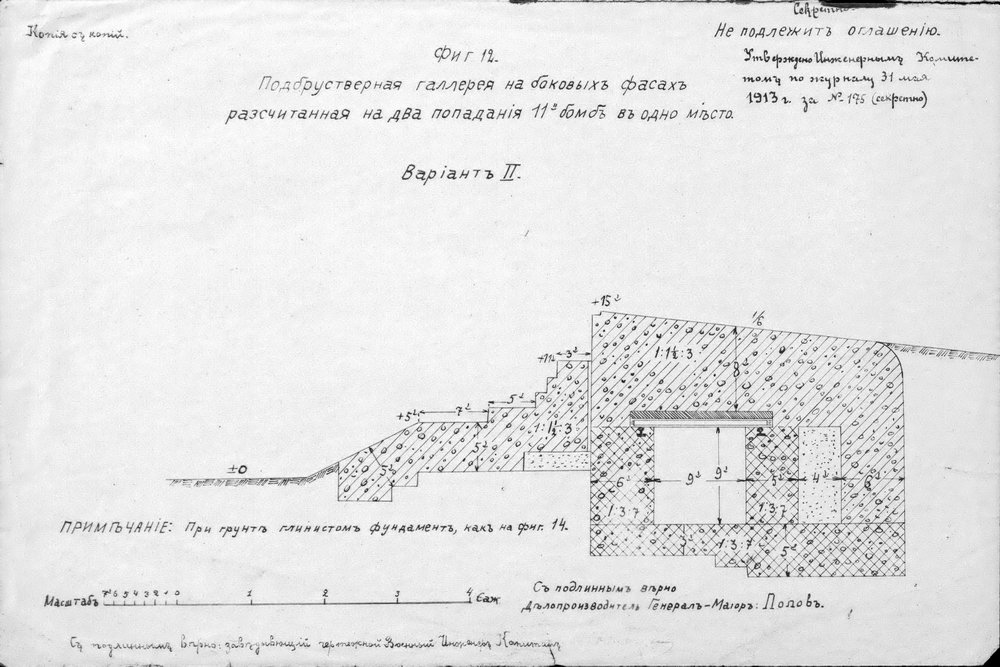 Копія съ копій.
Секретно
Не подлежитъ оглашенію.
Утверждено Инженернымъ Комите-
томъ по журналу 31 мая
1913 г. за № 175 (секретно)
Фиг 12.
Подбрустверная галлерея на боковыхъ фасахъ
разсчитанная на два попаданія 11ᵈ бомбъ въ одно мѣсто.
Варіантъ II.
+15'
1/6
+11' 3'
1:1½:3
8'
5'
+5' 7'
1:1½:3
5'
5'
±0
1 2
6' 9' 9' 5' 4' 6'
1:3:7 1:3:7
3' 1:3:7 5'
ПРИМѢЧАНІЕ: При грунтѣ глинистом фундаментъ, какъ на фиг. 14.
Масштабъ 7' 6 5 4 3 2 1 0 1 2 3 4 Саж
Съ подлиннымъ вѣрно
Дѣлопроизводитель Генералъ-Маіоръ: Поповъ.
Съ подлиннымъ вѣрно: завѣдующій чертежной Военный Инженеръ Капитанъ